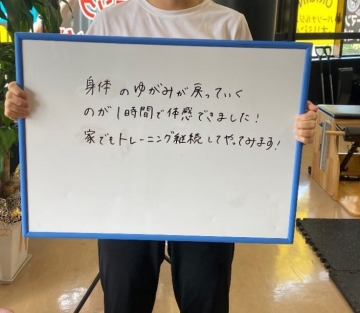 身体のゆがみが戻っていく
のが1時間で体感できました!
家でもトレーニング継続してやってみます!